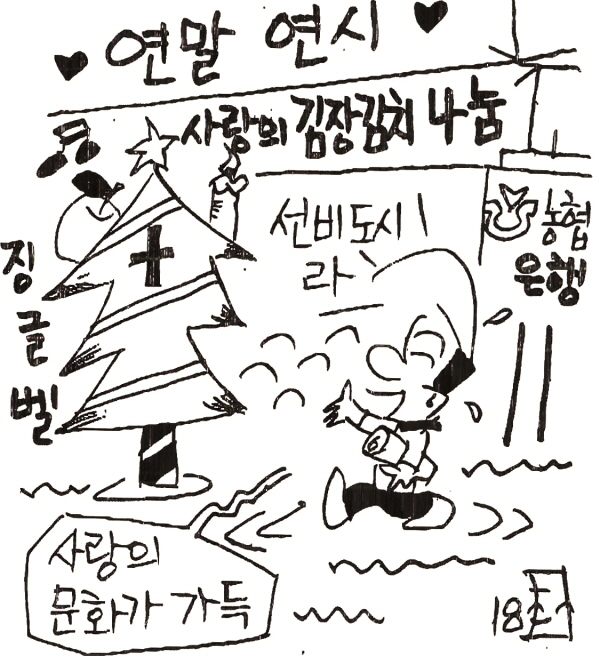 연말 연시
사랑의 김장김치 나눔
선비도시
라
농협
은행
징
글
벨
사랑의
문화가 가득
18